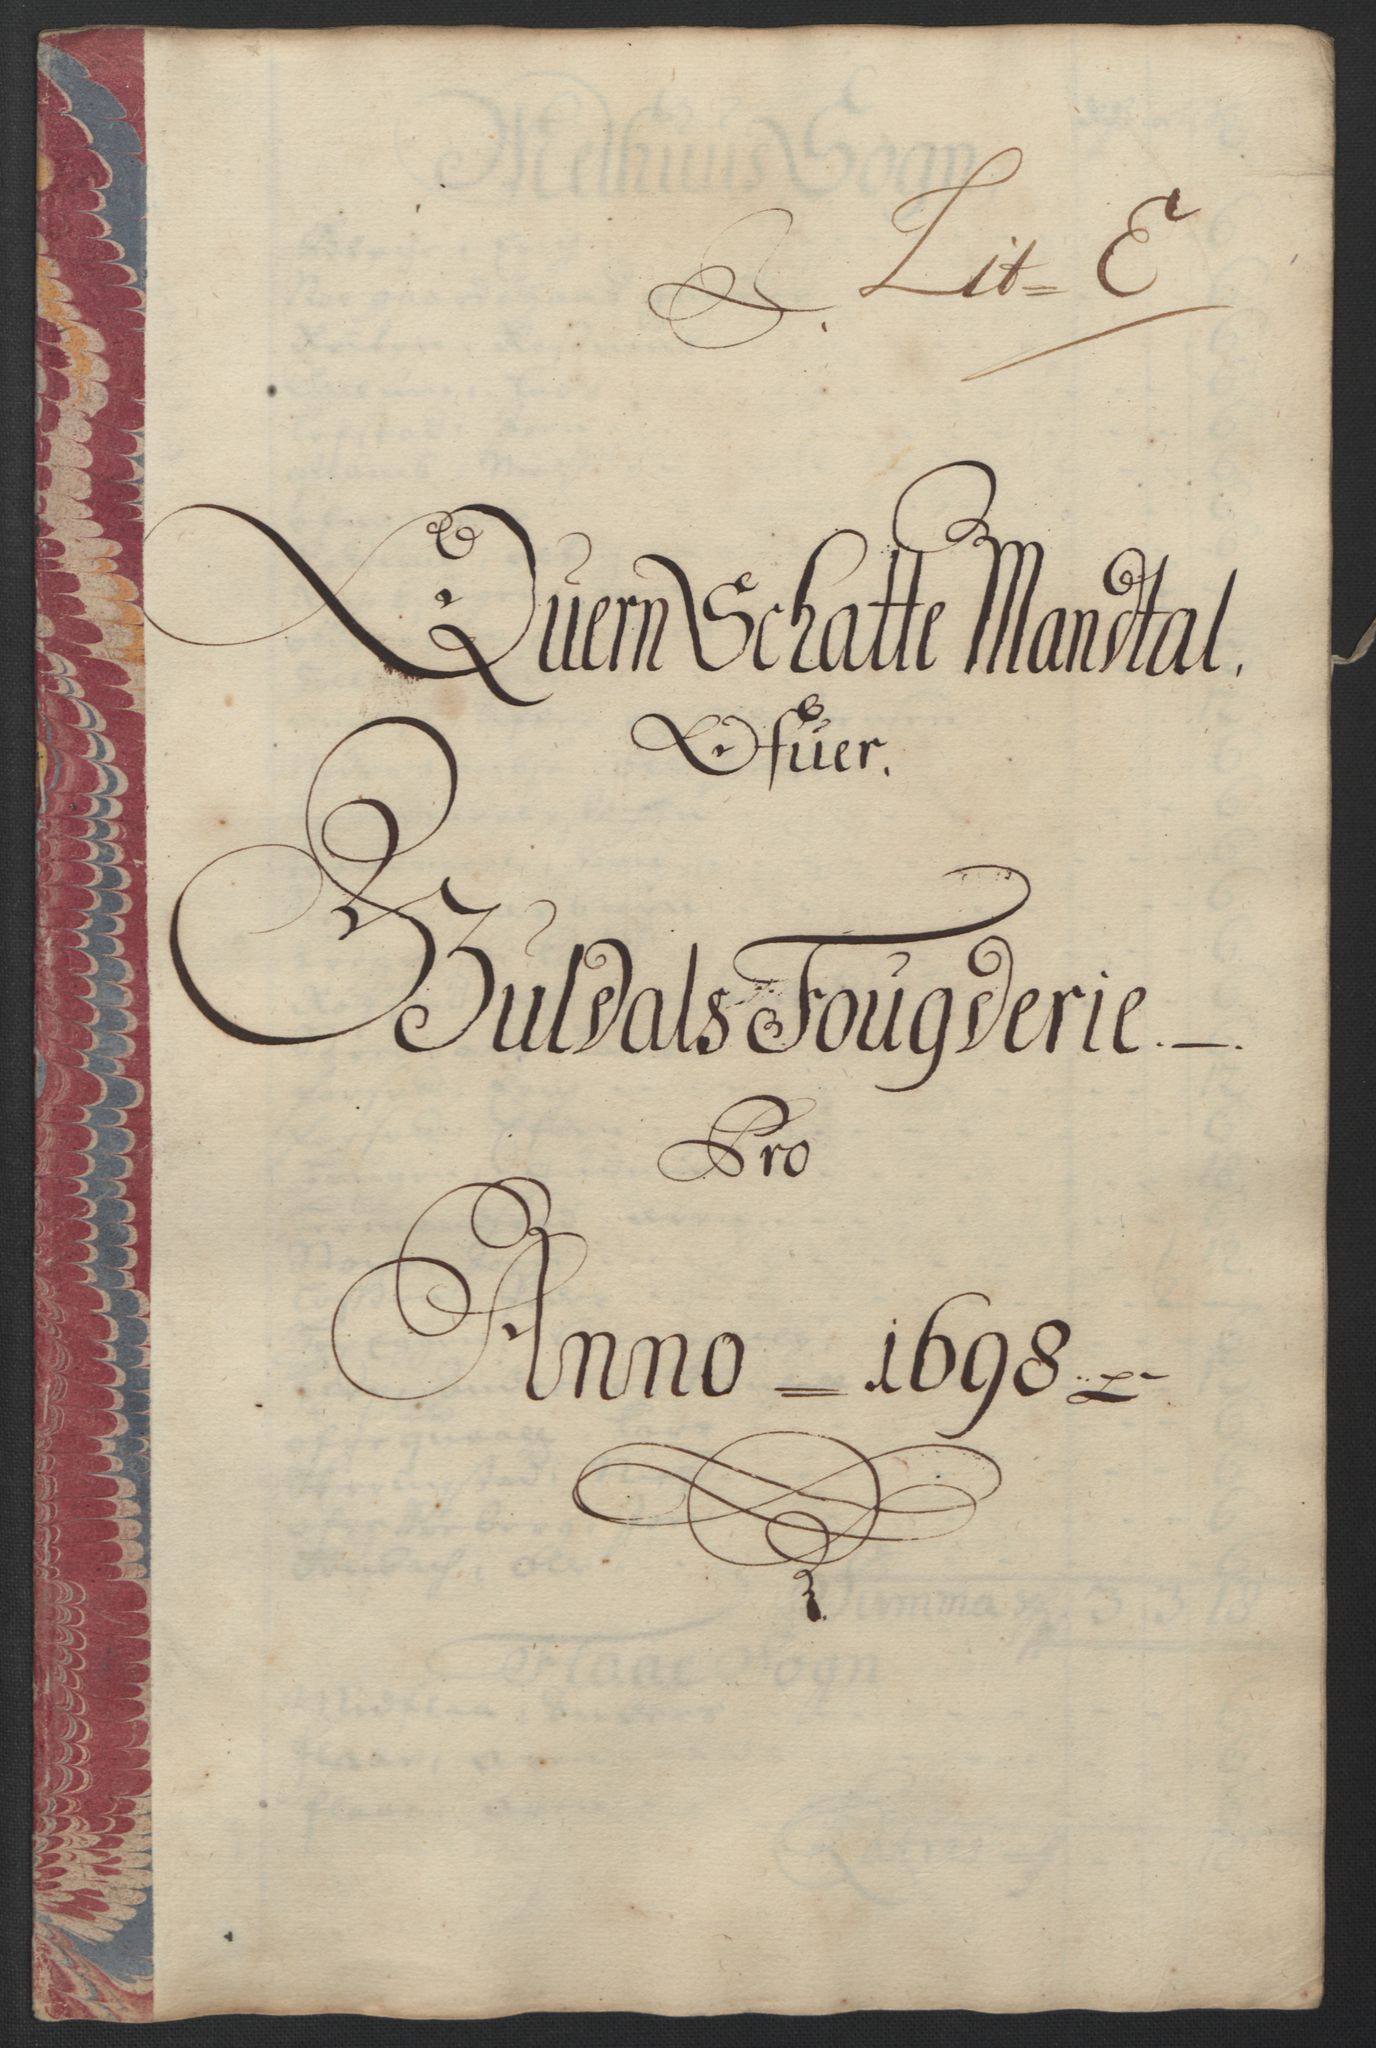 Lit= E
Quern Schatte Mandtal.
Ofuer.
Guldals Fougderie.
Pro
Anno = 1698